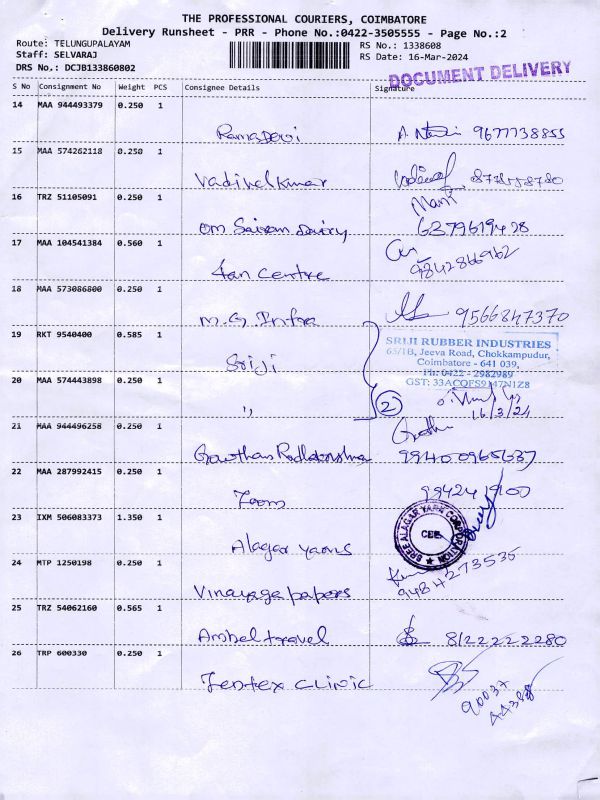 THE PROFESSIONAL COURIERS, COIMBATORE
Delivery Runsheet - PRR - Phone No.:0422-3505555 - Page No.:2
Route: TELUNGUPALAYAM
Staff: SELVARAJ
DRS No.: DCJB133860802
RS No.: 1338608
RS Date: 16-Mar-2024
DOCUMENT DELIVERY
S No Consignment No Weight PCS Consignee Details Signature
14 MAA 944493379 0.250 1
RamaDevi 9677738855
15 MAA 574262118 0.250 1
Vadivelkumar
16 TRZ 51105091 0.250 1
Mani
Om Sairam Dairy 6379619428
17 MAA 104541384 0.560 1
Fan Centre 9842866962
18 MAA 573086800 0.250 1
M.G. Infra 9566847370
19 RKT 9540400 0.585 1
Sriji
SRIJI RUBBER INDUSTRIES
65/1B, Jeeva Road, Chokkampudur,
Coimbatore - 641 039,
Ph: 0422 - 2982989
GST: 33ACQFS9147N1Z8
20 MAA 574443898 0.250 1
" 2
16/3/24
21 MAA 944496258 0.250 1
Gowtham
22 MAA 287992415 0.250 1
Zoom
23 IXM 506083373 1.350 1
Alagar yarns
SREE ALAGAR YARN CORPORATION
CBE
24 MTP 1250198 0.250 1
Vinayaga papers 9484273535
25 TRZ 54062160 0.565 1
Ambel travel 8122222280
26 TRP 600330 0.250 1
Zentex CLINIC
90037